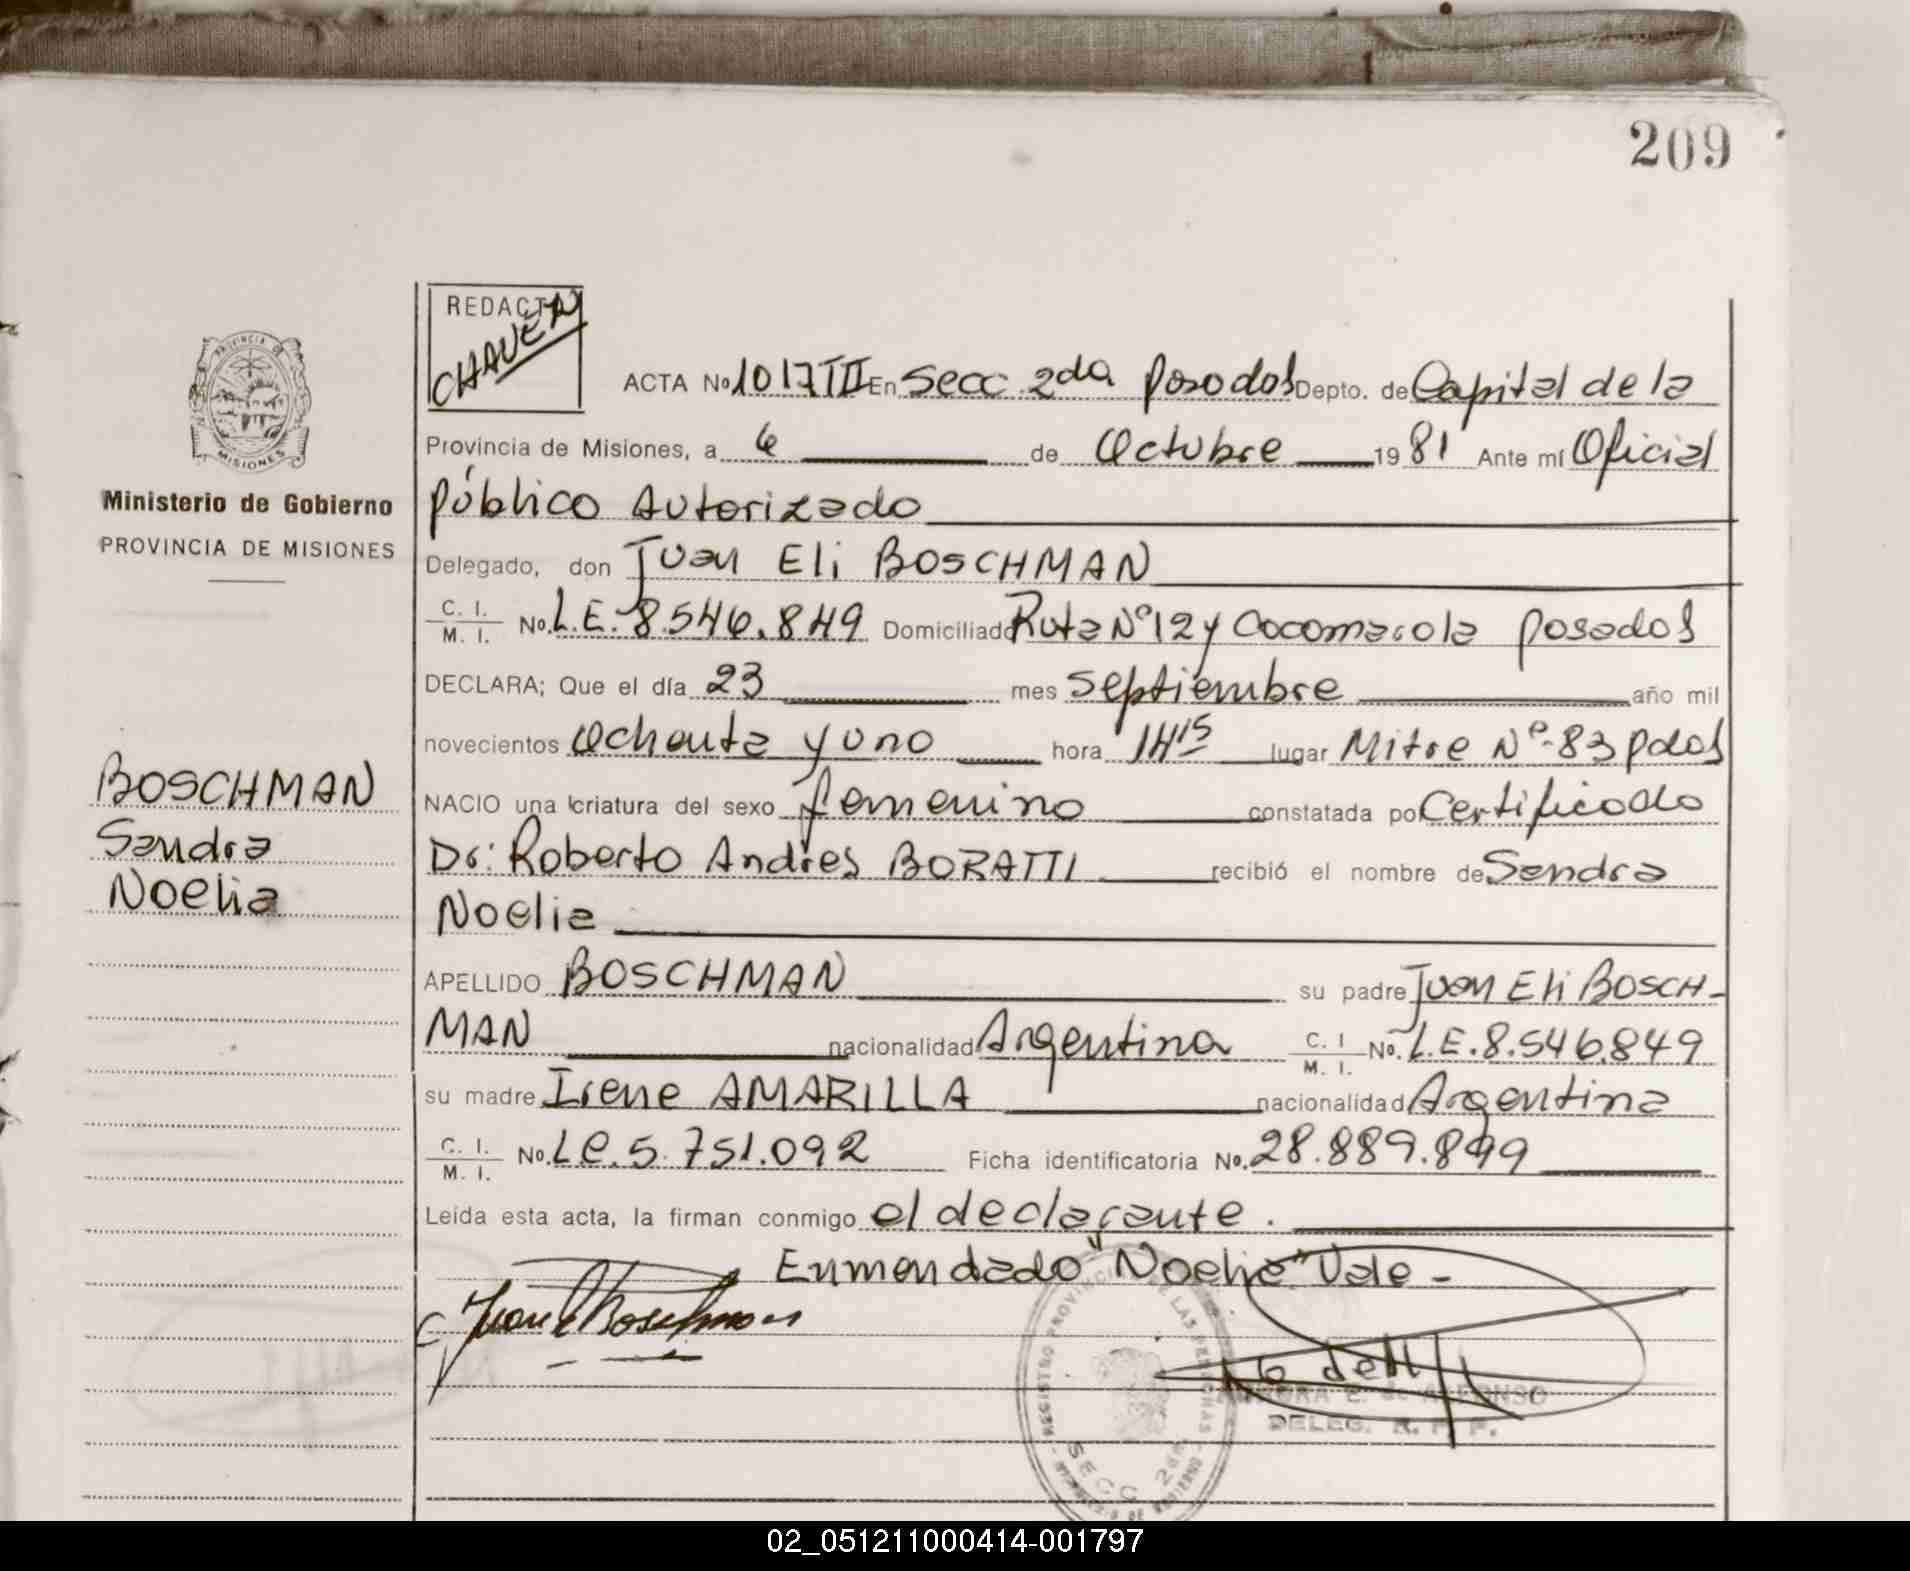 209
REDACTA
CHAVEZ
PROVINCIA DE
MISIONES
Ministerio de Gobierno
PROVINCIA DE MISIONES
BOSCHMAN
Sandra
Noelia
ACTA No 1017 III En Secc. 2da Posadas Depto. de Capital de la
Provincia de Misiones, a 6 de Octubre 1981 Ante mí Oficial
Público Autorizado
Delegado, don Juan Eli BOSCHMAN
C. I. M. I. No. L.E. 8.546.849 Domiciliado Ruta Nº 12 y Cocomarola Posadas
DECLARA; Que el día 23 mes septiembre año mil
novecientos ochenta y uno hora 14 15 lugar Mitre Nº 83 Pdas
NACIO una criatura del sexo femenino constatada por Certificado
Dr: Roberto Andres BORATTI recibió el nombre de Sandra
Noelia
APELLIDO BOSCHMAN su padre Juan Eli BOSCH-
MAN nacionalidad Argentina C. I. M. I. No. L.E. 8.546.849
su madre Irene AMARILLA nacionalidad Argentina
C. I. M. I. No. L.C. 5.751.092 Ficha identificatoria No. 28.889.899
Leída esta acta, la firman conmigo el declarante.
Enmendado "Noelia" Vale -
Juan E Boschman
REGISTRO PROVINCIAL DE LAS PERSONAS
SECC 2da.
E. de ALFONSO
DELEG. R. P. P.
02_051211000414-001797